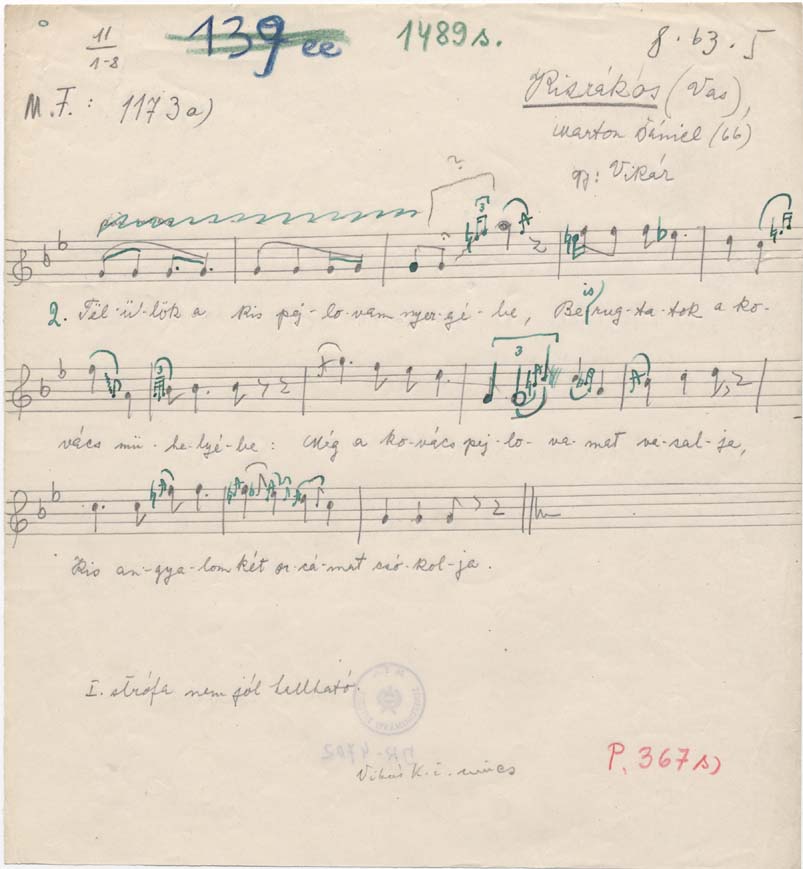 11
1-8
139 ee
1489 s.
8. b3. 5
M. F.: 1173 a)
Kisrákos (Vas),
Marton Dániel (66)
gy: Vikár
?
3
2. Föl-ül-lök a kis pej-lo-vam nyer-gé-be, Be is rug-ta-tok a ko-
3
3
vács mü-he-lyé-be: Míg a ko-vács pej-lo-va-mat va-sal-ja,
Kis an-gya-lom két or-cá-mat csó-kol-ja.
I. strófa nem jól hallható.
Vikár K. i. nincs
P. 367 s)